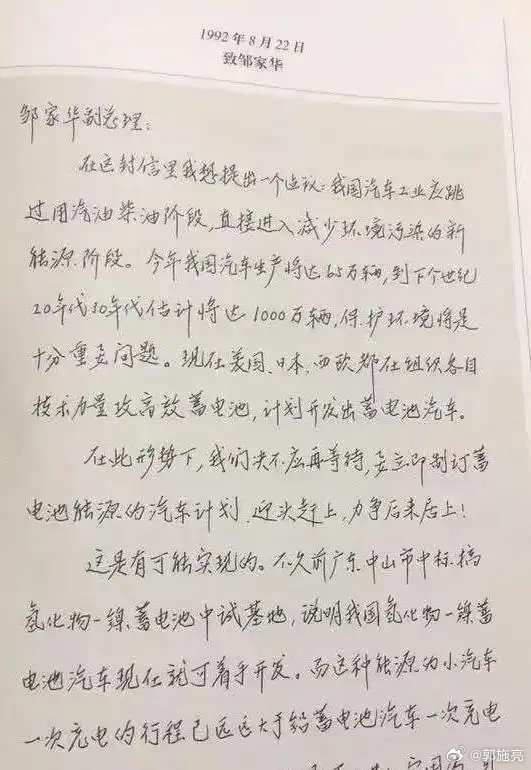 1992年8月22日
致邹家华
邹家华副总理：
在这封信里我想提出一个建议：我国汽车工业应跳
过用汽油柴油阶段，直接进入减少环境污染的新
能源阶段。今年我国汽车生产将达65万辆，到下个世纪
20年代30年代估计将达1000万辆，保护环境将是
十分重要问题。现在美国、日本、西欧都在组织各自
技术力量攻高效蓄电池，计划开发出蓄电池汽车。
在此形势下，我们决不应再等待，要立即制订蓄
电池能源的汽车计划，迎头赶上，力争后来居上！
这是有可能实现的。不久前广东中山市中标搞
氢化物—镍蓄电池中试基地，说明我国氢化物—镍蓄
电池汽车现在就可着手开发。而这种能源的小汽车
一次充电的行程已远远大于铅蓄电池汽车一次充电
@郭施亮